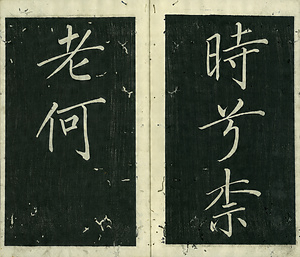 時兮柰
老何